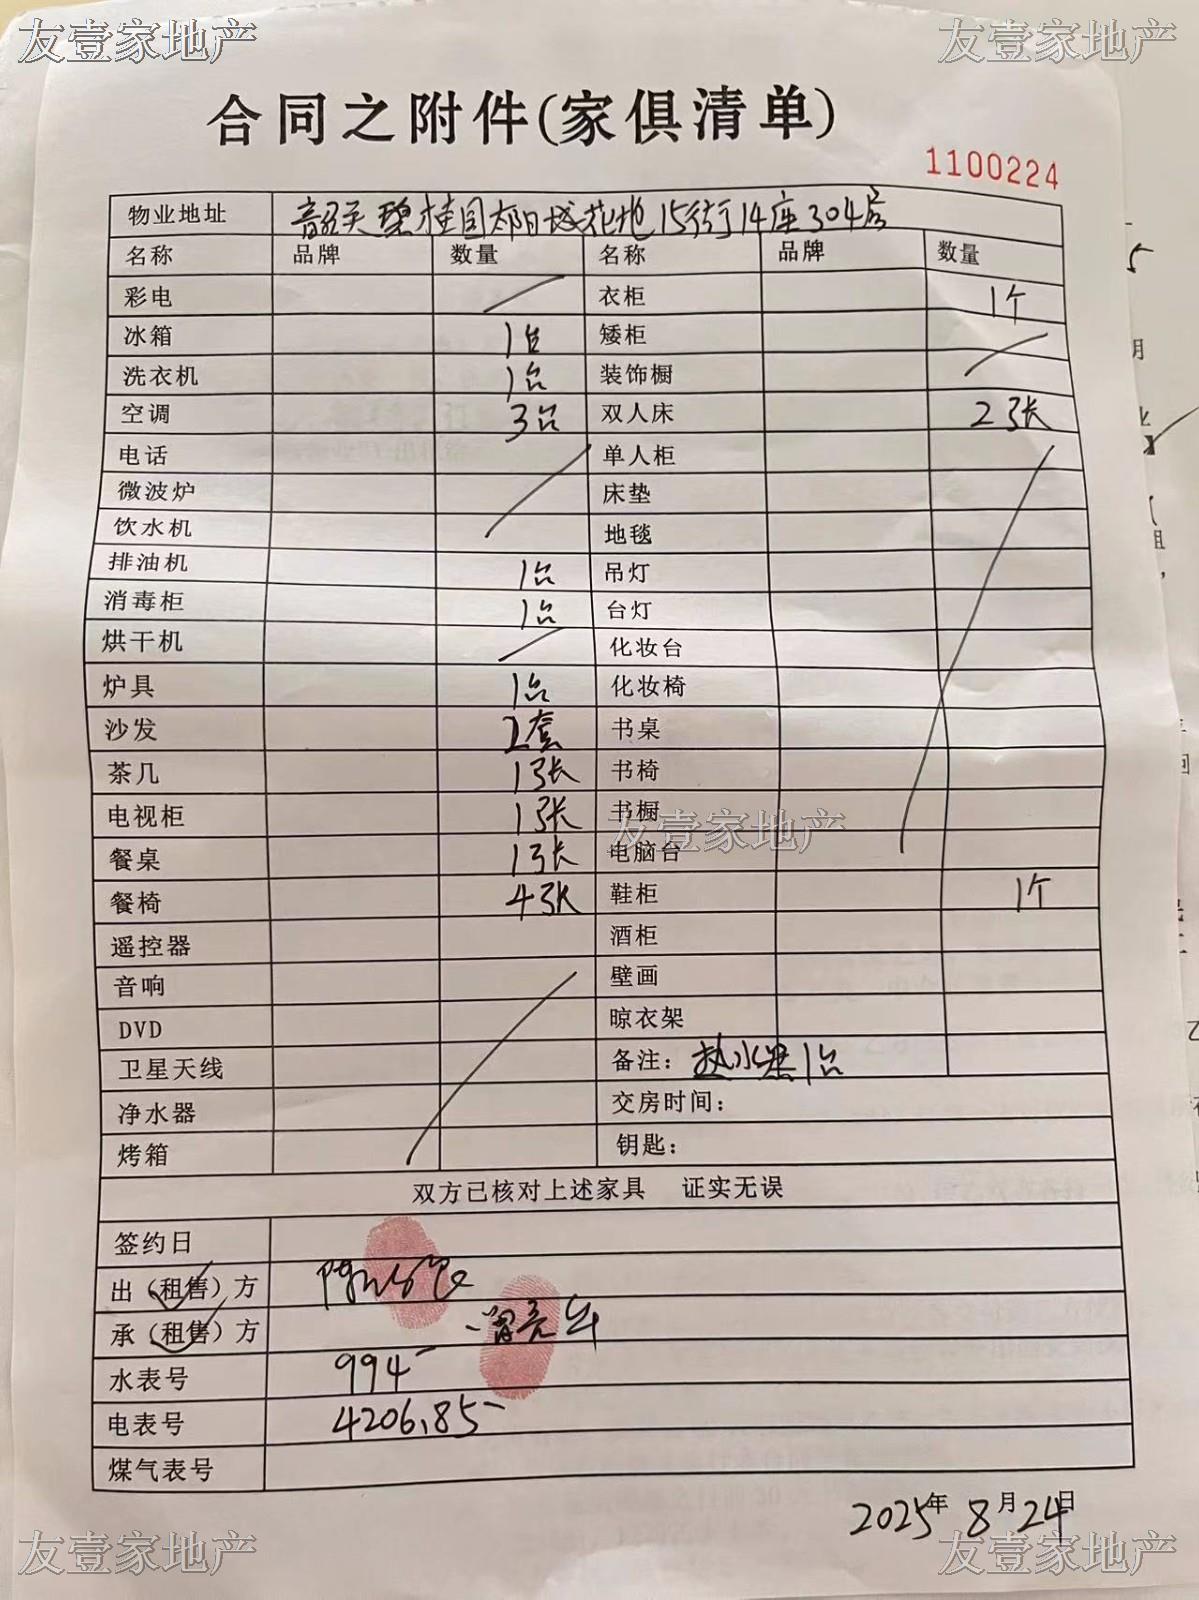 友壹家地产 友壹家地产
合同之附件(家俱清单)
1100224
物业地址 韶关碧桂园太阳城花地15街14座304房
名称 品牌 数量 名称 品牌 数量
彩电 衣柜 1个
冰箱 1台 矮柜
洗衣机 1台 装饰橱
空调 3台 双人床 2张
电话 单人柜
微波炉 床垫
饮水机 地毯
排油机 1台 吊灯
消毒柜 1台 台灯
烘干机 化妆台
炉具 1台 化妆椅
沙发 1套 书桌
茶几 1张 书椅
电视柜 1张 书橱
友壹家地产
餐桌 1张 电脑台
餐椅 4张 鞋柜 1个
遥控器 酒柜
音响 壁画
DVD 晾衣架
卫星天线 备注：热水器1台
净水器 交房时间：
烤箱 钥匙：
双方已核对上述家具 证实无误
签约日
出（租售）方
承（租售）方
水表号 994
电表号 4206.85
煤气表号
2025年8月24日
友壹家地产 友壹家地产